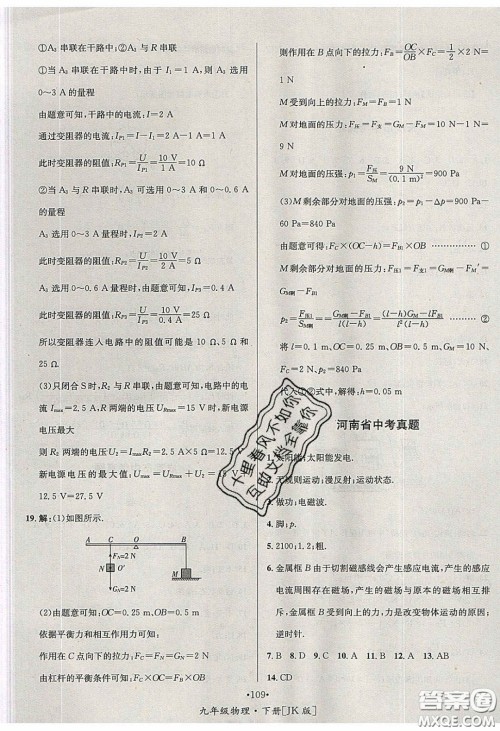 ①A₂ 串联在干路中;②A₂ 与 R 串联
①当 A₂ 串联在干路中时,由于 I₁=1 A,则 A₂ 选用
0～3 A 的量程
由题意可知,干路中的电流:I=2 A
通过变阻器的电流:I_P1=I-I₁=2 A-1 A=1 A
此时变阻器的阻值:R_P1=U/I_P1=10 V/1 A=10 Ω
②当 A₂ 与 R 串联时,A₂ 可选用 0～3 A 和 0～0.6 A
的量程
A₂ 选用 0～3 A 量程时,I_P2=2 A
此时变阻器的阻值:R_P2=U/I_P2=10 V/2 A=5 Ω
A₂ 选用 0～0.6 A 量程时,I_P3=0.4 A
此时变阻器的阻值:R_P3=U/I_P3=10 V/0.4 A=25 Ω
所以变阻器连入电路中的阻值可能是 10 Ω、5 Ω 和
25 Ω
(3)只闭合 S 时,R₂ 与 R 串联,由题意可知,电路中的电
流 I_max=0.5 A,R 两端的电压 U_R=10 V 时,新电源
电压最大
则 R₂ 两端的电压 U₂=I_max R₂=0.5 A×5 Ω=2.5 V
新电源电压的最大值:U_max=U_R+U₂=10 V+2.5 V=
12.5 V
19. 解:(1)如图所示.
A C O B
F_N=2 N
N O′
G_N=2 N
M
(2)由题意可知:OC=0.25 m,OB=0.5 m
依据平衡力和相互作用力可知:
作用在 C 点向下的拉力:F_C=F_N=G_N=2 N
由杠杆的平衡条件可知:F_C×OC=F_B×OB
则作用在 B 点向下的拉力:F_B=OC/OB×F_C=1/2×2 N=
1 N
M 受到向上的拉力:F_M=F_B=1 N
M 对地面的压力:F_压=F_支=G_M-F_M=10 N-1 N=
9 N
M 对地面的压强:p₁=F_压/S_M=9 N/(0.1 m)²=900 Pa
(3)M 对地面的压强:p₁=900 Pa,p₂=p₁-Δp=900 Pa-
60 Pa=840 Pa
由题意可得:F_C×(OC-h)=F_B1×OB ①
M 剩余部分对地面的压力:F_压1=F_支1=G_M-F_M′=
G_M剩-F_B1
p₂=F_压1/S_M剩=(G_M剩-F_B1)/l(l-h)=((l-h)G_M-lF_B1)/l²(l-h) ②
将 l=0.1 m,OC=0.25 m,OB=0.5 m,p₂=840 Pa
代入①②式中,解得:h=0.05 m
河南省中考真题
1. 太阳能发电.
2. 无规则运动;漫反射;运动状态.
3. 做功;电磁波.
4. 脚;p.
5. 2100;1.2;红.
6. 金属框 B 由于切割磁感线会产生感应电流,产生的感应
电流周围存在磁场,产生的磁场与原来的磁场相互排
斥,金属框 B 受到力的作用,力是改变物体运动的原因;
逆时针.
7. B 8. D 9. A 10. C 11. A 12. A 13. AB
14. CD
十里春风不如你
互助文档全靠你
·109·
九年级物理·下册[JK 版]
答案圈
MXQE.COM